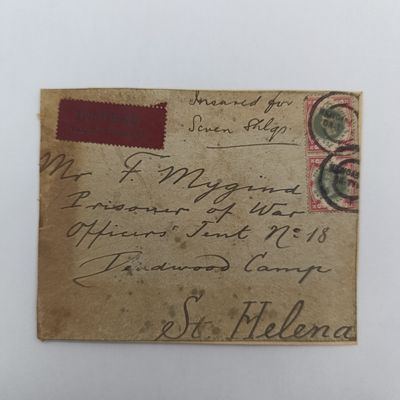 Insured for
Seven Shlgs.
Mr F. Mygind
Prisoner of War
Officers' Tent No: 18
Deadwood Camp
St Helena